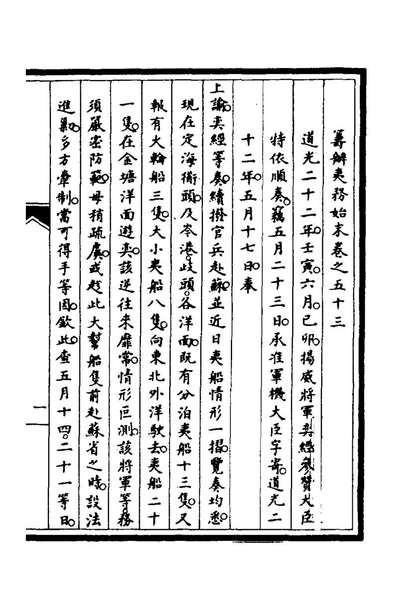 籌辦夷務始末卷之五十三
道光二十二年壬寅六月己卯揚威將軍奕經參贊大臣
特依順奏竊五月二十三日承准軍機大臣字寄道光二
十二年五月十七日奉
上諭奕經等奏續撥官兵赴蘇並近日夷船情形一摺覽奏均悉
現在定海衜頭及岑港岐頭各洋面既有分泊夷船十三隻又
報有大輪船三隻大小夷船八隻向東北外洋駛去夷船二十
一隻在金塘洋面遊奕該逆往來靡常情形叵測該將軍等務
須嚴密防範毋稍疏虞或趁此大幫船隻前赴蘇省之時設法
進勦多方牽制當可得手等因欽此查五月十四二十一等日
一